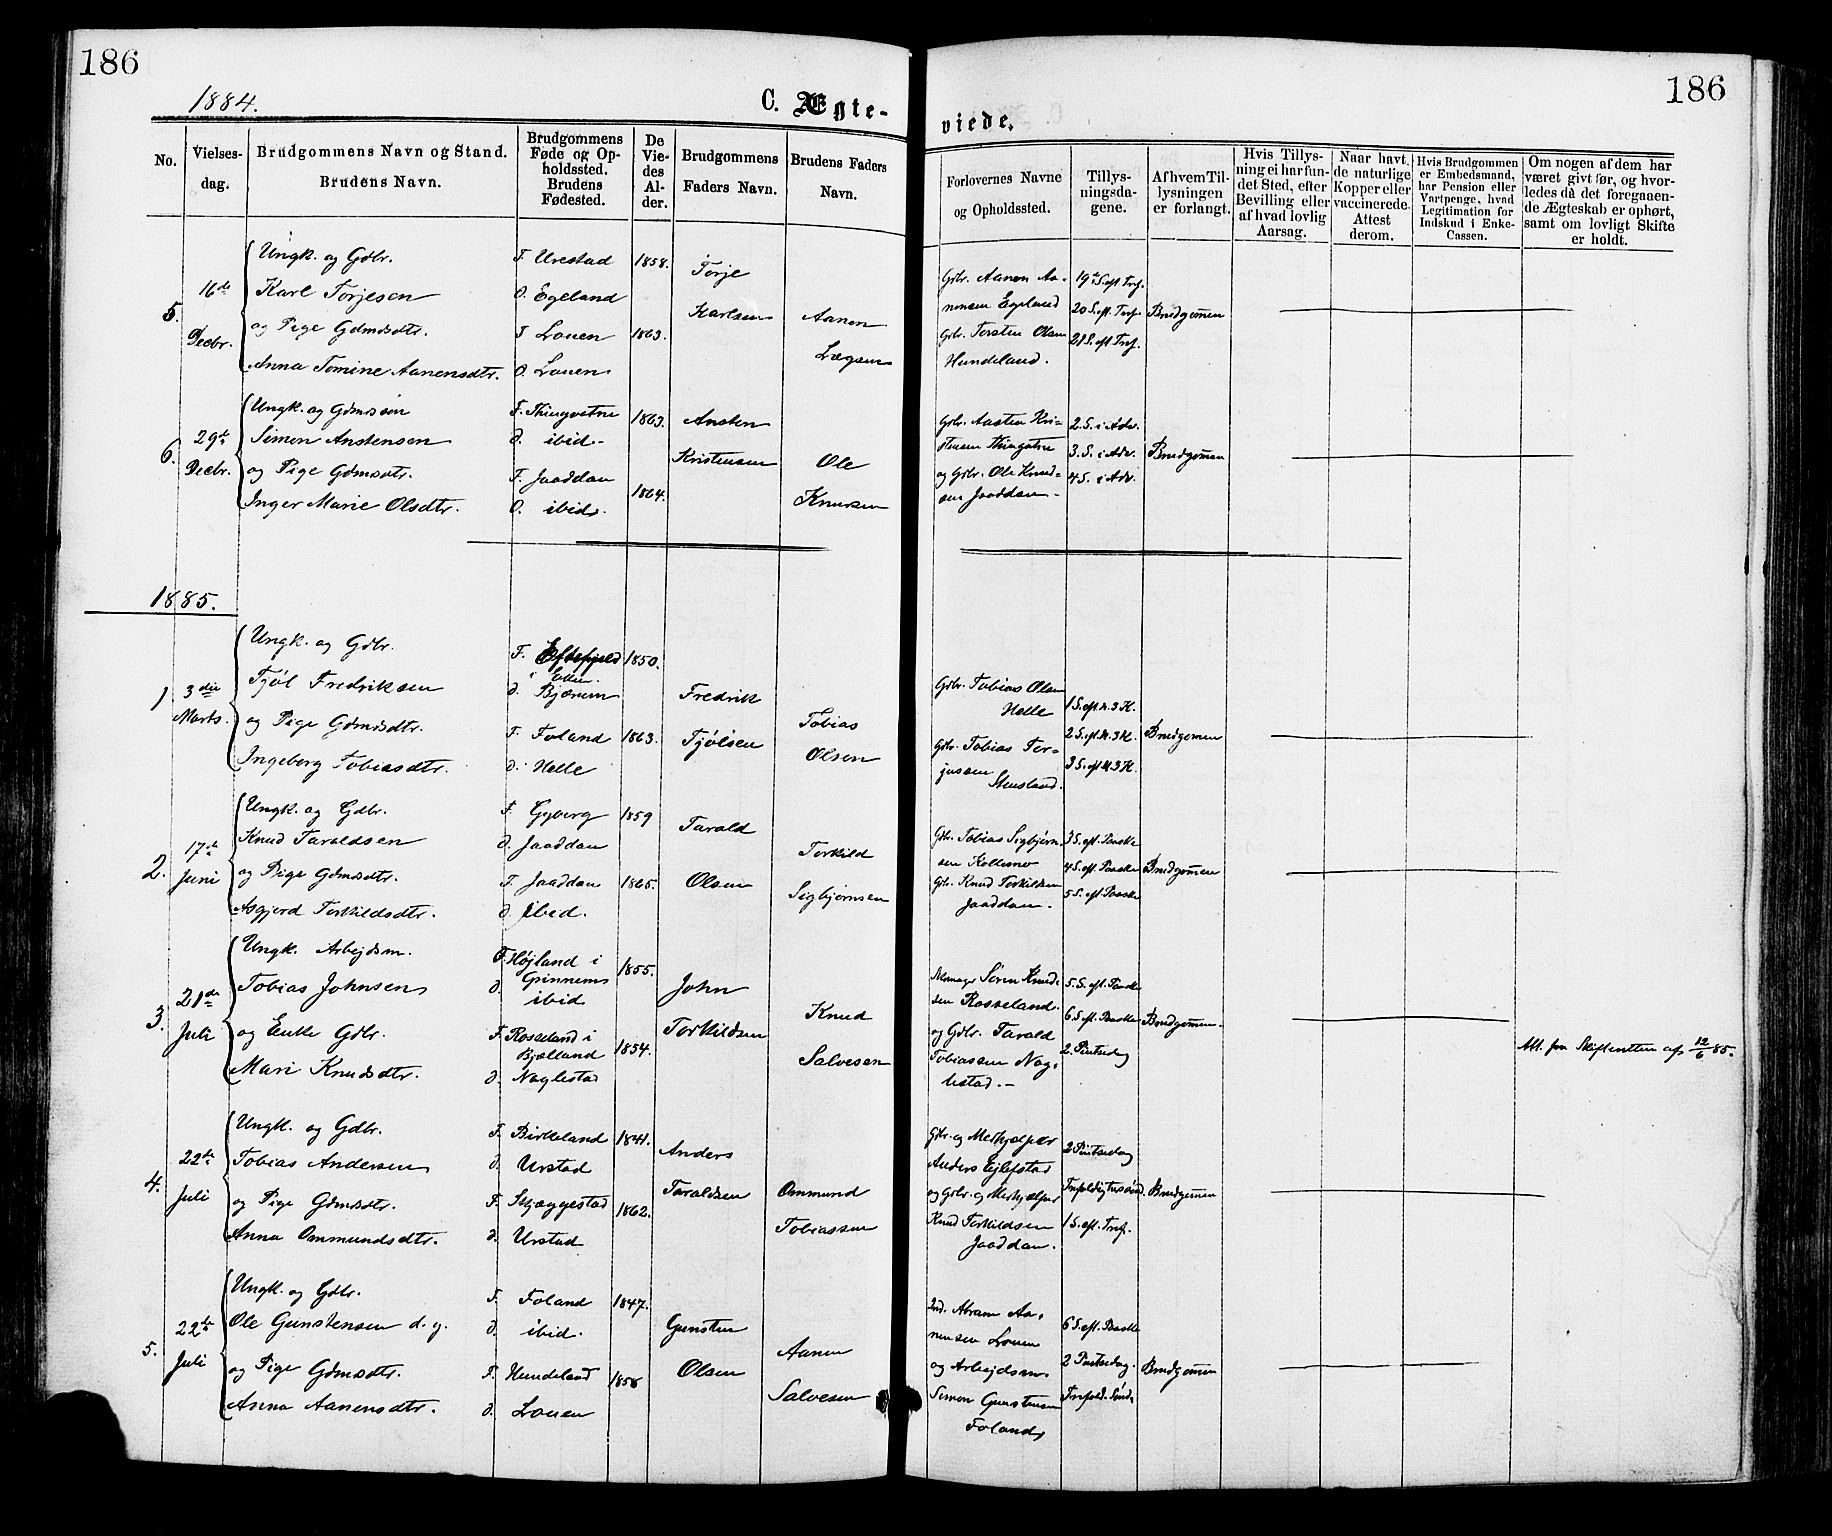 186
186
1884.
C. Ægte-
viede.
No.
Vielses-
dag.
Brudgommens Navn og Stand.
Brudens Navn.
Brudgommens
Føde og Op-
holdssted.
Brudens
Fødested.
De
Vie-
des
Al-
der.
Brudgommens
Faders Navn.
Brudens Faders
Navn.
Forlovernes Navne
og Opholdssted.
Tillys-
ningsda-
gene.
Af hvem Til-
lysningen
er forlangt.
Hvis Tillys-
ning ei har fun-
det Sted, efter
Bevilling eller
af hvad lovlig
Aarsag.
Naar havt
de naturlige
Kopper eller
vaccinerede.
Attest
derom.
Hvis Brudgommen
er Embedsmand,
har Pension eller
Vartpenge, hvad
Legitimation for
Indskud i Enke-
Cassen.
Om nogen af dem har
været givt før, og hvor-
ledes da det foregaaen-
de Ægteskab er ophørt,
samt om lovligt Skifte
er holdt.
5.
16de
Decbr.
Ungk. og Gdbr.
Karl Torjesen
og Pige Gdmdsdtr.
Anna Tomine Aanensdtr.
F. Urestad
O. Egeland
F. Louen
O. Louen
1858.
1863.
Torje
Karlsen
Aanen
Lægsen
Gdbr. Aanen Aa-
nensen Egeland
Gdbr. Torsten Olsen
Hundeland.
19de S. eft. Tref.
20 S. eft. Tref.
21 S. eft. Tref.
Brudgomen
6.
29de
Decbr.
Ungk. og Gdmdssøn
Simon Anstensen
og Pige Gdmdsdtr.
Inger Marie Olsdtr.
F. Thingvatne
O. ibid.
F. Jaaddan
O. ibid.
1863.
1864.
Ansten
Kristensen
Ole
Knudsen
Gdbr. Austen Kri-
stensen Thingvatne
og Gdbr. Ole Knud-
sen Jaaddan.
2. S. i Adv.
3. S. i Adv.
4 S. i Adv.
Brudgomen
1885.
1
3die
Marts.
Ungk. og Gdbr.
Tjøl Fredriksen
og Pige Gdmdsdtr.
Ingeborg Tobiasdtr.
F. Eftefjeld
O. Bjærum
F. Foland
O. Helle
1850.
1863.
Fredrik
Tjølsen
Tobias
Olsen
Gdbr. Tobias Olsen
Helle
Gdbr. Tobias Ter-
jussen
Stensland.
1 S. eft. H. 3 K.
2 S. eft. H. 3 K.
3 S. eft. H. 3 K.
Brudgomen
2.
17de
Juni
Ungk. og Gdbr.
Knud Taraldsen
og Pige Gdmdsdtr.
Asgjerd Torkildsdtr.
F. Gyberg
O. Jaaddan
F. Jaaddan
O. ibid.
1859
1865.
Tarald
Olsen
Torkild
Sigbjørnsen
Gdbr. Tobias Sigbjørn-
sen Kollesnø
Gdbr. Knud Torkildsen
Jaaddan.
3 S. eft. Paaske
4 S. eft. Paaske
5 S. eft. Paaske
Brudgomen
3.
21de
Juli
Ungk. Arbejdsm.
Tobias Johnsen
og Enke Gdbr.
Mari Knudsdtr.
F. Højland i
Grinnems
O. ibid
F. Rosseland i
Bjelland
O. Naglestad
1855.
1834.
John
Torkildsen
Knud
Salvesen
Søren Knud-
sen Rosseland.
og Gdbr. Tarald
Tobiassen Nag-
lestad.
5. S. eft. Paaske
6 S. eft. Paaske
2. Pintsedag
Brudgomen.
Att. fra Skifteretten af 12/6 85.
4.
22de
Juli
Ungk. og Gdbr.
Tobias Andersen
og Pige Gdmdsdtr.
Anna Ommundsdtr.
F. Birkeland
O. Urstad
F. Skjæggestad
O. Urstad
1841.
1862.
Anders
Taraldsen
Ommund
Tobiassen
Gdbr. og Medhjælper
Anders Ejlefstad
og Gdbr. og Medhjælper
Knud Torkildsen
Jaaddan.
2 Pintsedag
Trefoldighedssønd.
1 S. eft. Tref.
Brudgomen
5.
22de
Juli
Ungk. og Gdbr.
Ole Gunstensen d. y.
og Pige Gdmdsdtr.
Anna Aanensdtr.
F. Foland
O. ibid.
F. Hundeland
O. Louen
1847.
1856
Gunsten
Olsen
Aanen
Salvesen
Ind. Abram Aa-
nensen Louen
og Arbejdsm.
Simon Gunstensen
Foland
6 S. eft. Paaske
2 Pintsedag.
Trefold. Sønd.
Brudgomen